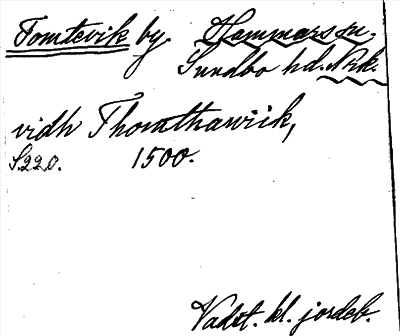 Tomtevik by. Hammars sn.
Sundbo hd. Nrk.
vidh Thomthawiik,
S. 220. 1500.
Vadst. kl. jordeb.